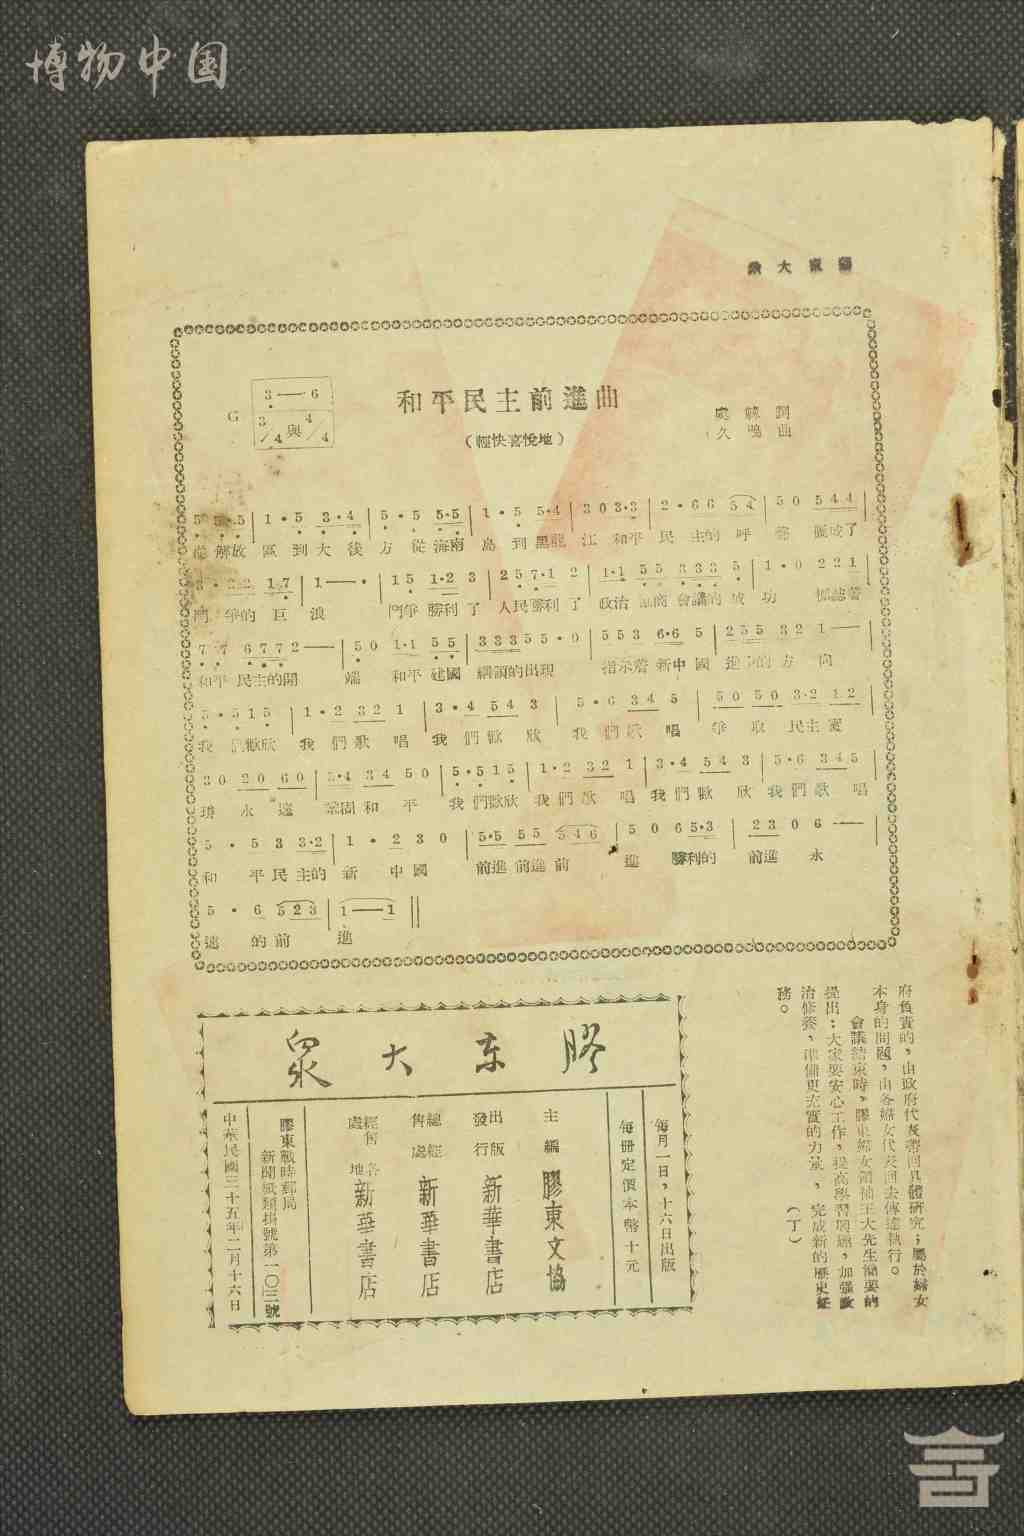 博物中国
膠東大衆
和平民主前進曲
（輕快喜悅地）
詞
久鳴曲
G
3——6
3/4 與 4/4
5 5·5 | 1·5 3·4 | 5·5 5·5 | 1·5 5·4 | 3 0 3·3 | 2·6 6 5 4 | 5 0 5 4 4
從 解放 區 到 大 後 方 從 海南 島 到 黑龍 江 和平 民 主的 呼 聲 匯成了
3·2 2 1·7 | 1——· | 1 5 1·2 3 | 2 5 7·1 2 | 1·1 5 5 3 3 3 5 | 1·0 2 2 1
爭的 巨 浪 鬥爭 勝利 了 人民 勝利 了 政治 會議的 成 功 標誌著
7 7 6 7 7 2—— | 5 0 1·1 5 5 | 3 3 3 5 5·0 | 5 5 3 6·6 5 | 2 5 5 3 2 1——
和平 民主的開 端 和平 建國 綱領的出現 指示着 新中 國 進 的 方 向
5·5 1 5 | 1·2 3 2 1 | 3·4 5 4 3 | 5·6 3 4 5 | 5 0 5 0 3·2 1 2
我 們歡欣 我 們 歌 唱 我 們 歡 欣 我 們 歌 唱 爭 取 民主 實
3 0 2 0 6 0 | 5·4 3 4 5 0 | 5·5 1 5 | 1·2 3 2 1 | 3·4 5 4 3 | 5·6 3 4 5
現 永 遠 鞏固 和 平 我 們歡欣 我 們 歌 唱 我 們 歡 欣 我 們 歌 唱
5·5 3 3·2 | 1·2 3 0 | 5·5 5 5 5 4 6 | 5 0 6 5·3 | 2 3 0 6——
和 平 民 主的 新 中 國 前進 前進 前 進 勝利的 前進 永
5·6 5 2 3 | 1——1
遠 的 前 進
府負責的，由政府代表帶回具體研究；屬於婦女
本身的問題，由各婦女代表回去傳達執行。
會議結束時，膠東婦女領袖王大先生簡要的
提出：大家要安心工作，提高學習興趣，加强政
治修養，準備更充實的力量，完成新的歷史任
務。
（丁）
膠東大衆
每月一日，十六日出版
每册定價本幣十元
主編 膠東文協
出版發行 新華書店
總經售處 新華書店
經售處 各地新華書店
膠東戰時郵局
新聞紙類掛號第一〇三號
中華民國三十五年二月十六日